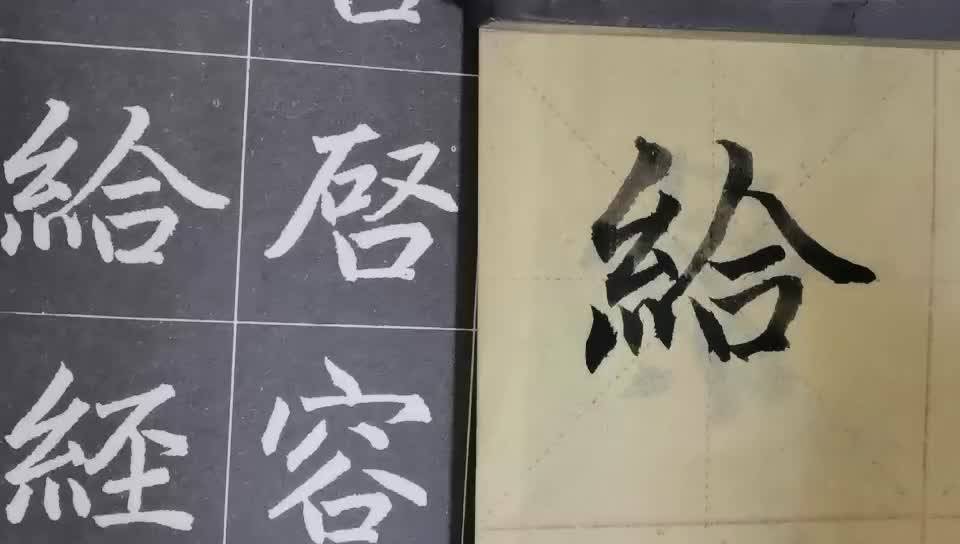 給 啓 給
經 容